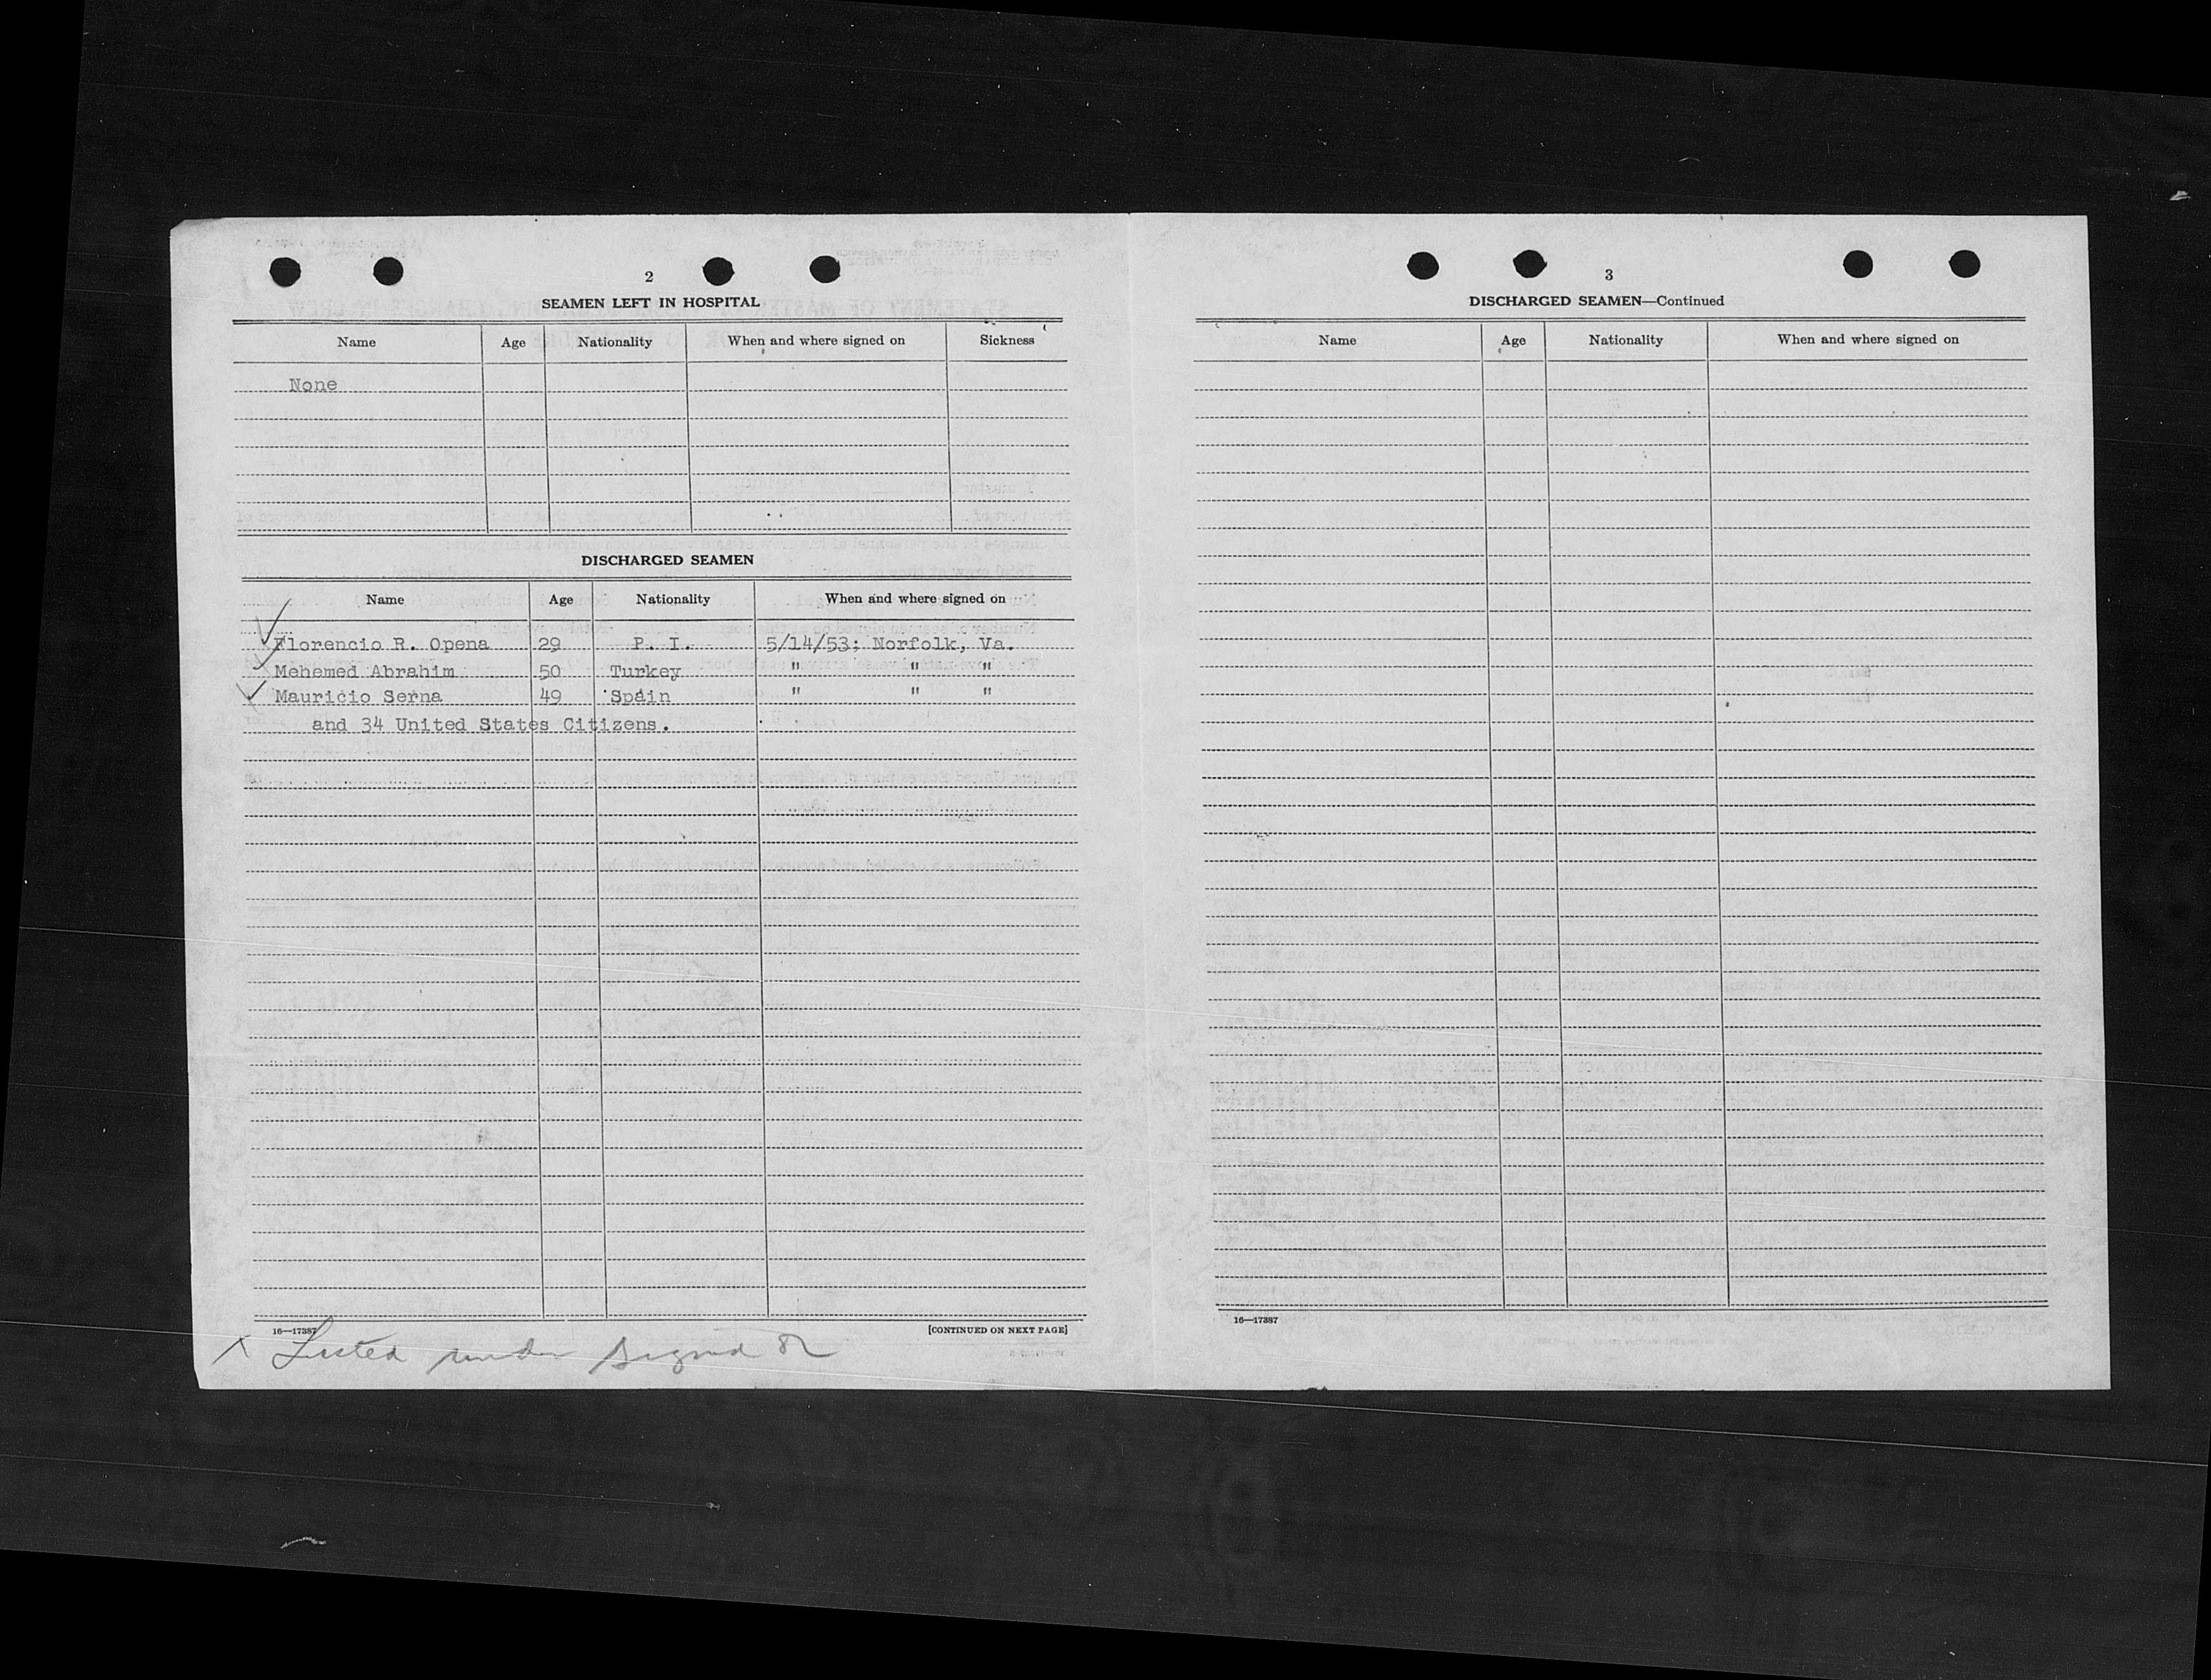 2
SEAMEN LEFT IN HOSPITAL
Name Age Nationality When and where signed on Sickness
None
DISCHARGED SEAMEN
Name Age Nationality When and where signed on
Florencio R. Opena 29 P. I. 5/14/53; Norfolk, Va.
Mehemed Abrahim 50 Turkey " " "
Mauricio Serna 49 Spain " " "
and 34 United States Citizens.
16—17387 [CONTINUED ON NEXT PAGE]
X Listed under Signed on
3
DISCHARGED SEAMEN—Continued
Name Age Nationality When and where signed on
16—17387